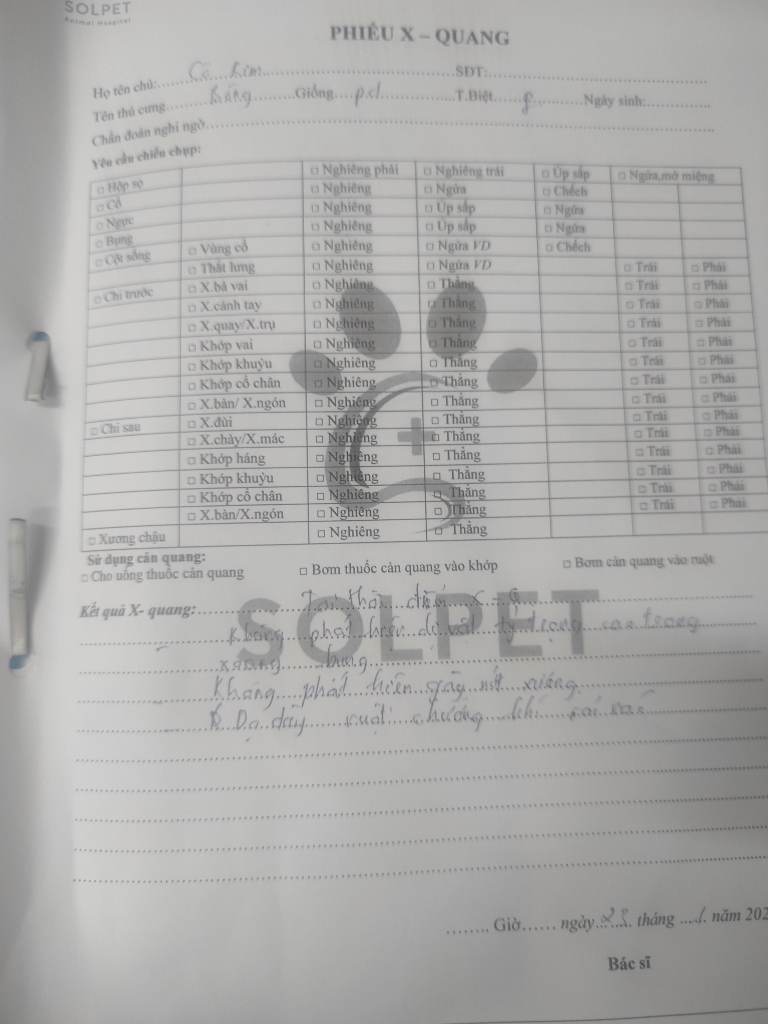 SOLPET
Animal Hospital
PHIẾU X – QUANG
Họ tên chủ:..... Cô Kim.....SĐT:.....
Tên thú cưng.....Giống.....T.Biệt..... Ngày sinh:.....
Chẩn đoán nghi ngờ.....
Yêu cầu chiếu chụp:
□ Hộp sọ □ Nghiêng phải □ Nghiêng trái □ Úp sấp □ Ngửa,mở miệng
□ Cổ □ Nghiêng □ Ngửa □ Chếch
□ Ngực □ Nghiêng □ Úp sấp □ Ngửa
□ Bụng □ Nghiêng □ Úp sấp □ Ngửa
□ Cột sống □ Vùng cổ □ Nghiêng □ Ngửa VD □ Chếch
□ Thắt lưng □ Nghiêng □ Ngửa VD □ Trái □ Phải
□ Chi trước □ X.bả vai □ Nghiêng □ Thẳng □ Trái □ Phải
□ X.cánh tay □ Nghiêng □ Thẳng □ Trái □ Phải
□ X.quay/X.trụ □ Nghiêng □ Thẳng □ Trái □ Phải
□ Khớp vai □ Nghiêng □ Thẳng □ Trái □ Phải
□ Khớp khuỷu □ Nghiêng □ Thẳng □ Trái □ Phải
□ Khớp cổ chân □ Nghiêng □ Thẳng □ Trái □ Phải
□ X.bàn/ X.ngón □ Nghiêng □ Thẳng □ Trái □ Phải
□ Chi sau □ X.đùi □ Nghiêng □ Thẳng □ Trái □ Phải
□ X.chày/X.mác □ Nghiêng □ Thẳng □ Trái □ Phải
□ Khớp háng □ Nghiêng □ Thẳng □ Trái □ Phải
□ Khớp khuỷu □ Nghiêng □ Thẳng □ Trái □ Phải
□ Khớp cổ chân □ Nghiêng □ Thẳng □ Trái □ Phải
□ X.bàn/X.ngón □ Nghiêng □ Thẳng □ Trái □ Phải
□ Xương chậu □ Nghiêng □ Thẳng
Sử dụng cản quang:
□ Cho uống thuốc cản quang □ Bơm thuốc cản quang vào khớp □ Bơm cản quang vào ruột
SOLPET
Kết quả X- quang:..... Tại thời điểm X - Q
Không phát hiện dị vật tỷ trọng cao trong
xoang bụng
Không phát hiện gãy nứt xương
Dạ dày ruột chướng khí
........ Giờ...... ngày..23.. tháng ..1.. năm 202
Bác sĩ